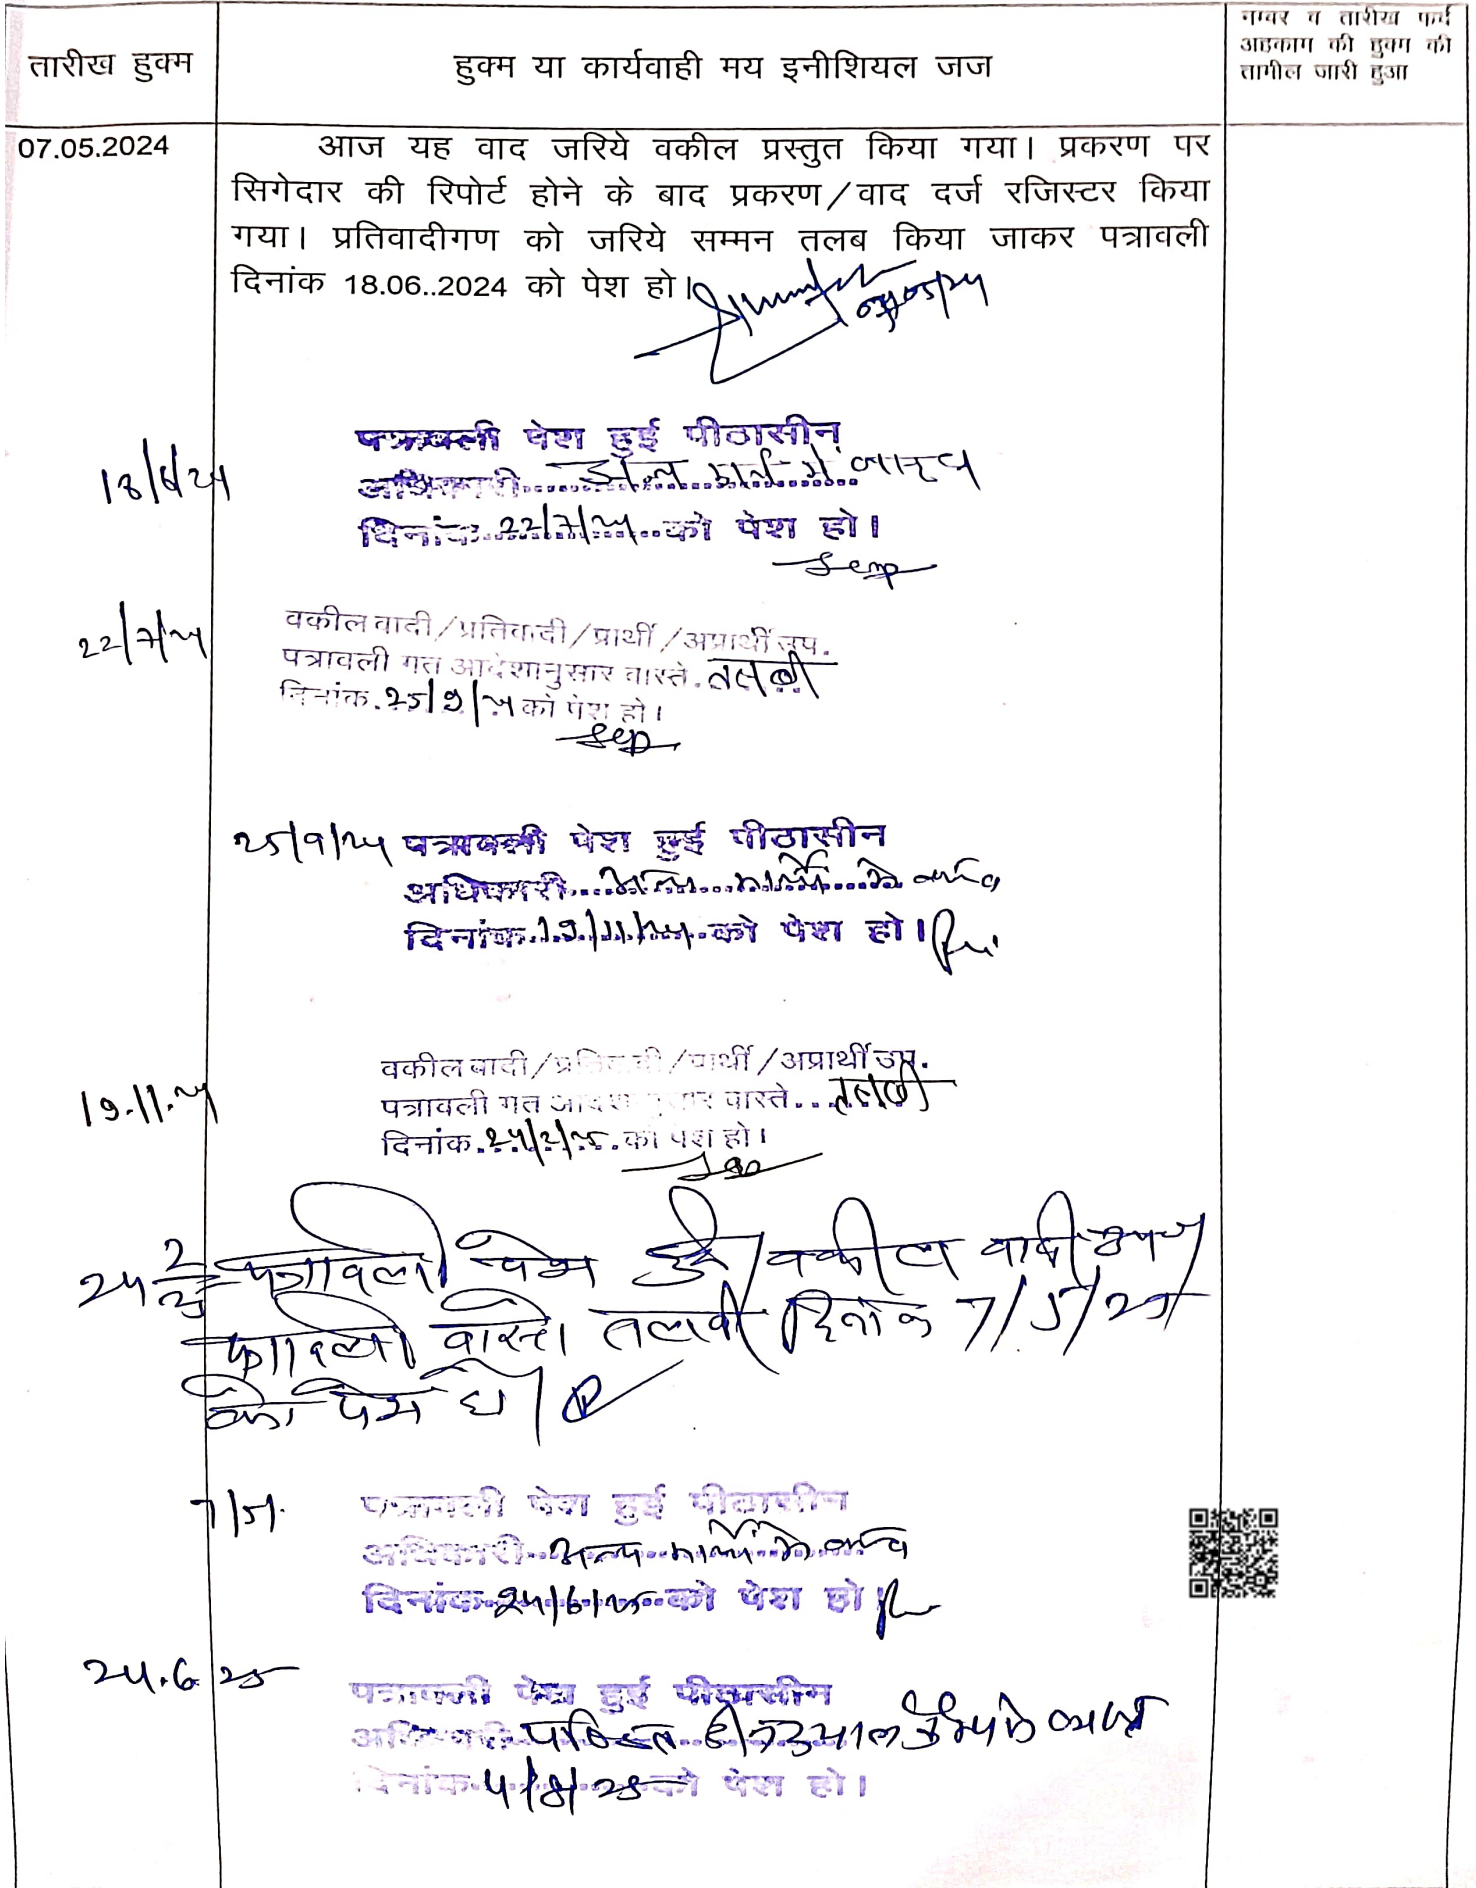 तारीख हुक्म
हुक्म या कार्यवाही मय इनीशियल जज
नम्बर व तारीख फर्द
अहकाम की हुक्म की
तामील जारी हुआ
07.05.2024
आज यह वाद जरिये वकील प्रस्तुत किया गया। प्रकरण पर
सिगेदार की रिपोर्ट होने के बाद प्रकरण/वाद दर्ज रजिस्टर किया
गया। प्रतिवादीगण को जरिये सम्मन तलब किया जाकर पत्रावली
दिनांक 18.06..2024 को पेश हो।
07/05/24
18/6/24
पत्रावली पेश हुई पीठासीन
अधिकारी अन्य कार्य में व्यस्त
दिनांक 22/7/24 को पेश हो।
22/7/24
वकील वादी/प्रतिवादी/प्रार्थी/अप्रार्थी उप.
पत्रावली गत आदेशानुसार वास्ते. तलबी
दिनांक. 25/9/24 को पेश हो।
25/9/24 पत्रावली पेश हुई पीठासीन
अधिकारी अन्य कार्य में व्यस्त
दिनांक 19/11/24 को पेश हो।
19.11.24
वकील वादी/प्रतिवादी/प्रार्थी/अप्रार्थी उप.
पत्रावली गत आदेशानुसार वास्ते तलबी
दिनांक. 24/2/25 को पेश हो।
24/2/25 पत्रावली पेश हुई। वकील वादी उप।
पत्रावली वास्ते तलबी दिनांक 7/5/25
को पेश हो।
7/5
पत्रावली पेश हुई पीठासीन
अधिकारी अन्य कार्य में व्यस्त
दिनांक 24/6/25 को पेश हो।
24.6.25
पत्रावली पेश हुई पीठासीन
अधिकारी
दिनांक 4/8/25 को पेश हो।